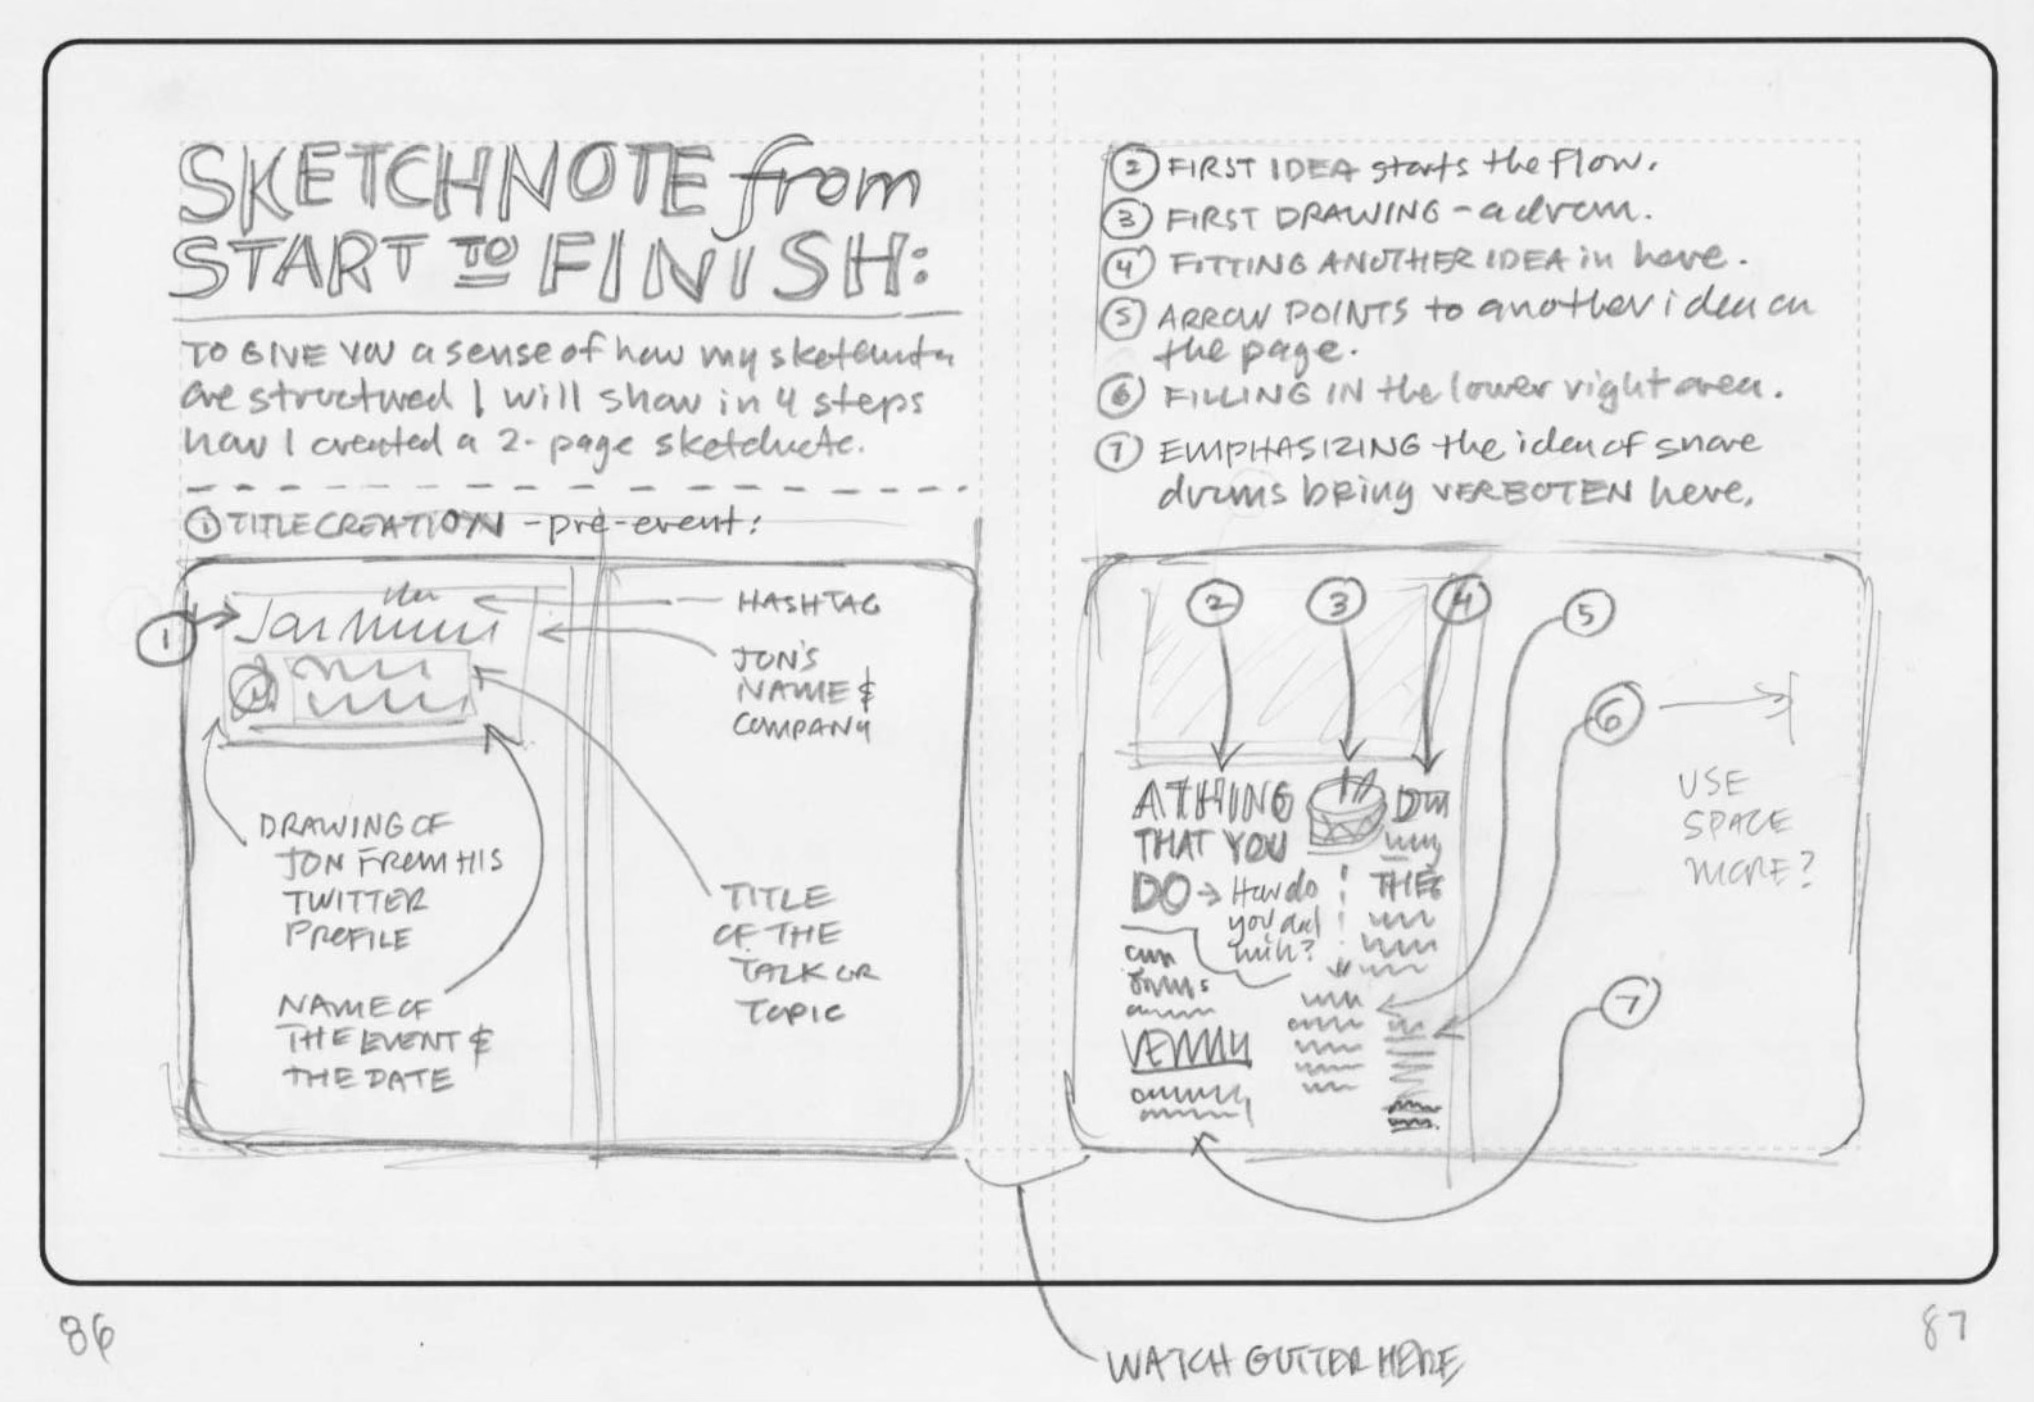 SKETCHNOTE from
START TO FINISH:
TO GIVE YOU a sense of how my sketchnotes
are structured I will show in 4 steps
how I created a 2-page sketchnote.
① TITLE CREATION - pre-event:
1
HASHTAG
JON'S
NAME &
COMPANY
DRAWING OF
JON FROM HIS
TWITTER
PROFILE
NAME OF
THE EVENT &
THE DATE
TITLE
OF THE
TALK OR
TOPIC
② FIRST IDEA starts the flow.
③ FIRST DRAWING - a drum.
④ FITTING ANOTHER IDEA in here.
⑤ ARROW POINTS to another idea on
the page.
⑥ FILLING IN the lower right area.
⑦ EMPHASIZING the idea of snare
drums being VERBOTEN here.
2 3 4 5
6
7
A THING
THAT YOU
DO → How do
you add
THE
USE
SPACE
MORE?
86
87
WATCH GUTTER HERE